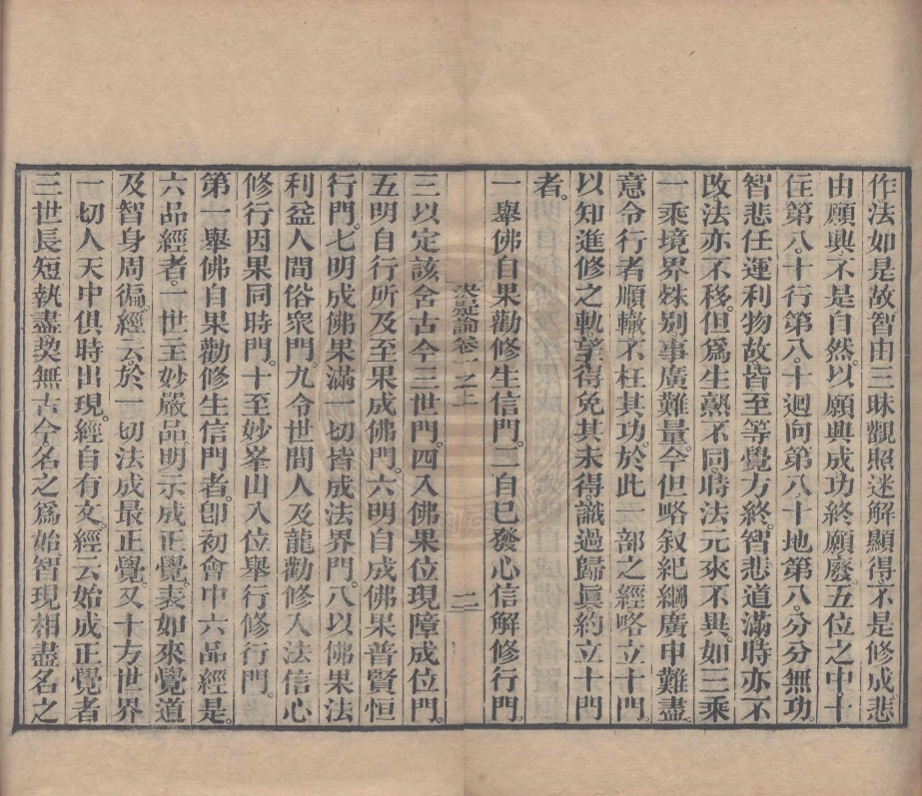 作法如是故智由三昧觀照迷解顯得不是修成悲
由願興不是自然以願興成功終願廢五位之中十
住第八十行第八十迴向第八十地第八分分無功
智悲任運利物故皆至等覺方終智悲道滿時亦不
改法亦不移但爲生熟不同時法元來不異如三乘
一乘境界殊别事廣難量今但略叙紀綱廣申難盡
意令行者順轍不枉其功於此一部之經略立十門
以知進修之軌望得免其未得識過歸眞約立十門
者。
一舉佛自果勸修生信門。二自已發心信解修行門。
決疑論卷一之上 二
三以定該含古今三世門。四入佛果位現障成位門。
五明自行所及至果成佛門。六明自成佛果普賢恒
行門。七明成佛果滿一切皆成法界門。八以佛果法
利益人間俗衆門。九令世間人及龍勸修入法信心
修行因果同時門。十至妙峯山入位舉行修行門。
第一舉佛自果勸修生信門者。卽初會中六品經是。
六品經者。一世主妙嚴品。明示成正覺。表如來覺道
及智身周徧。經云。於一切法成最正覺。又十方世界
一切人天中俱時出現。經自有文。經云始成正覺者
三世長短執盡契無古今。名之爲始。智現相盡名之